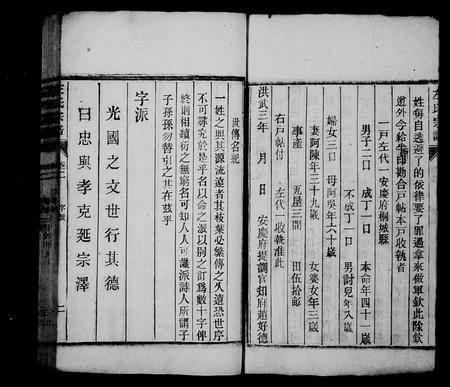 姓每自迷避了的依律要了罪過拿來做軍欽此除欽
遵外今給半印勘合戶帖本戶收執者
一戶左代一安慶府桐城縣
男子二口　成丁一口　本命年四十一歲
不成丁一口　男討兒年八歲
婦女三口　母阿吳年六十歲
妻阿陳年三十九歲　女婆女年三歲
事產　瓦屋三間　田伍拾畝
右戶帖付　左代一收執准此
洪武三年　月　日　安慶府提調官知府趙好德
世傳名紀
一姓之興其源流遠者其枝葉必繁傳之久遠恐世序
不可尋究於是乎名以命之派以別之訂為數十字俾
終則相續衍之無窮名可知人人可識派詩人所謂子
子孫孫勿替引之其在茲乎
字派
光國之文世行其德
曰忠與孝克延宗澤
左氏宗譜　卷之一　字派　一
左氏宗譜